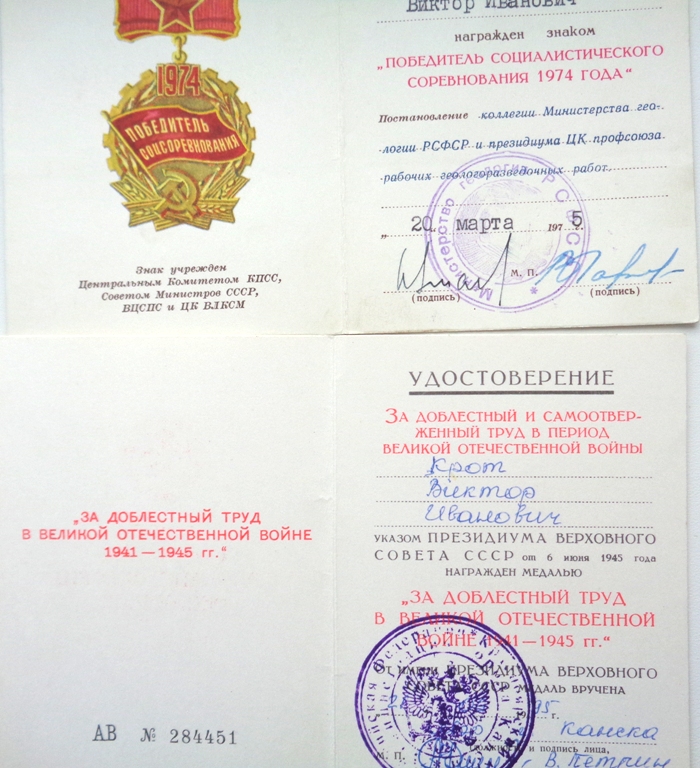 1974
ПОБЕДИТЕЛЬ
СОЦСОРЕВНОВАНИЯ
Знак учрежден
Центральным Комитетом КПСС,
Советом Министров СССР,
ВЦСПС и ЦК ВЛКСМ
Виктор Иванович
награжден знаком
„ПОБЕДИТЕЛЬ СОЦИАЛИСТИЧЕСКОГО
СОРЕВНОВАНИЯ 1974 ГОДА“
Постановление коллегии Министерства гео-
логии РСФСР и президиума ЦК профсоюза
рабочих геологоразведочных работ.
„20. марта 1975 г.
М. П.
(подпись) (подпись)
Министерство геологии РСФСР
„ЗА ДОБЛЕСТНЫЙ ТРУД
В ВЕЛИКОЙ ОТЕЧЕСТВЕННОЙ ВОЙНЕ
1941—1945 гг.“
АВ № 284451
УДОСТОВЕРЕНИЕ
ЗА ДОБЛЕСТНЫЙ И САМООТВЕР-
ЖЕННЫЙ ТРУД В ПЕРИОД
ВЕЛИКОЙ ОТЕЧЕСТВЕННОЙ ВОЙНЫ
Крот
Виктор
Иванович
УКАЗОМ ПРЕЗИДИУМА ВЕРХОВНОГО
СОВЕТА СССР от 6 июня 1945 года
НАГРАЖДЕН МЕДАЛЬЮ
„ЗА ДОБЛЕСТНЫЙ ТРУД
В ВЕЛИКОЙ ОТЕЧЕСТВЕННОЙ
ВОЙНЕ 1941—1945 гг.“
ОТ ИМЕНИ ПРЕЗИДИУМА ВЕРХОВНОГО
СОВЕТА СССР МЕДАЛЬ ВРУЧЕНА
95 г.
Канска
М. П. (должность и подпись лица,
В. Петрин